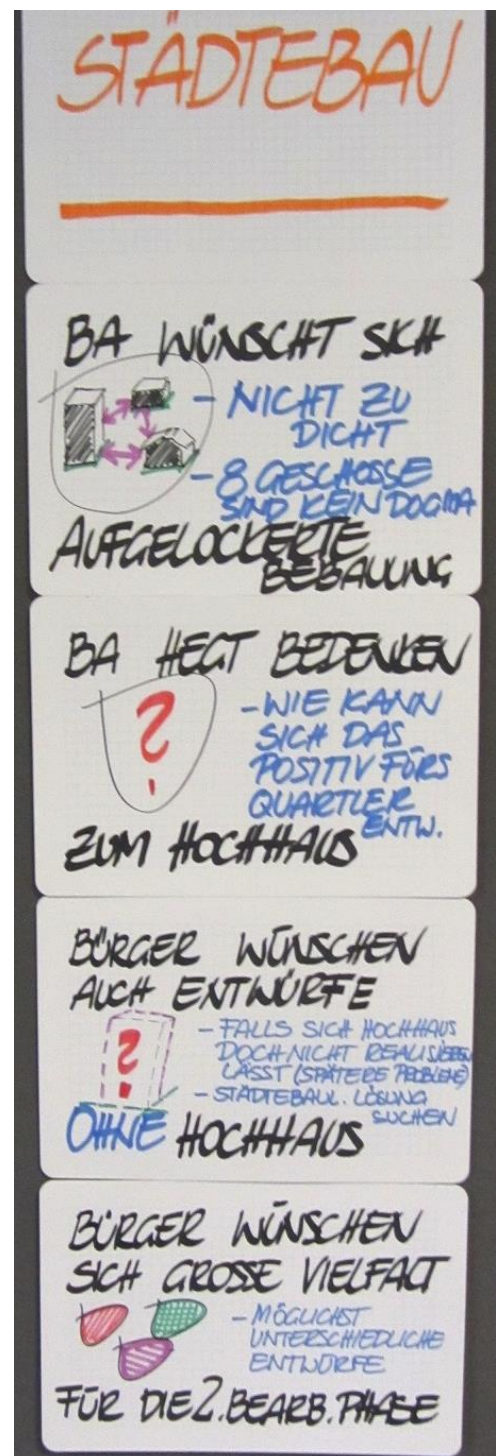 STÄDTEBAU
BA WÜNSCHT SICH
- NICHT ZU
DICHT
- 8 GESCHOSSE
SIND KEIN DOGMA
AUFGELOCKERTE
BEBAUUNG
BA HEGT BEDENKEN
?
- WIE KANN
SICH DAS
POSITIV FÜRS
QUARTIER
ENTW.
ZUM HOCHHAUS
BÜRGER WÜNSCHEN
AUCH ENTWÜRFE
?
- FALLS SICH HOCHHAUS
DOCH NICHT REALISIEREN
LÄSST (SPÄTERE PROBLEME)
- STÄDTEBAUL. LÖSUNG
SUCHEN
OHNE HOCHHAUS
BÜRGER WÜNSCHEN
SICH GROSSE VIELFALT
- MÖGLICHST
UNTERSCHIEDLICHE
ENTWÜRFE
FÜR DIE 2. BEARB. PHASE